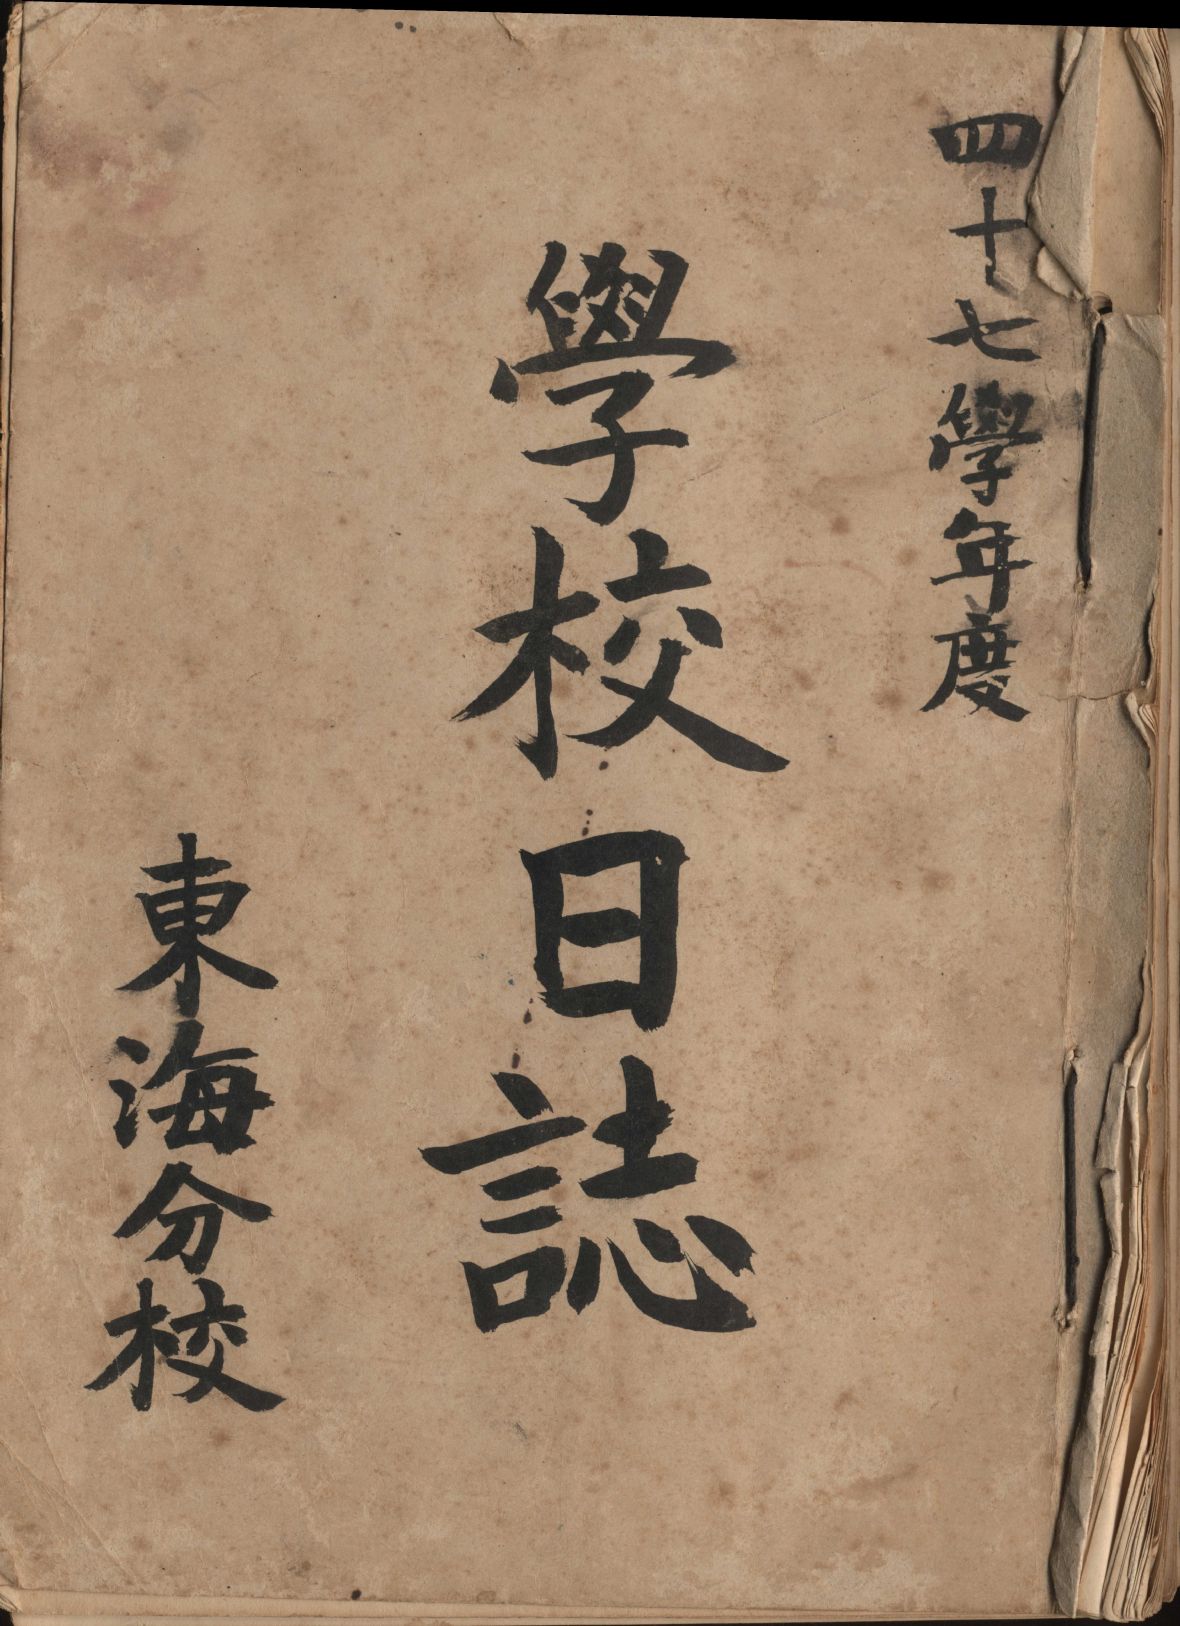 四十七學年度
學校日誌
東海分校